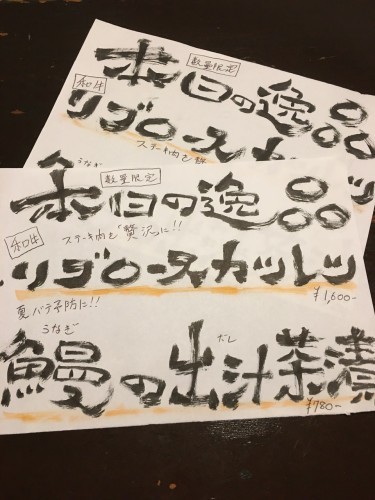 数量限定
本日の逸品
和牛
リブロースカ
ステーキ肉を
うなぎ
数量限定
本日の逸品
ステーキ肉を贅沢に!!
和牛
リブロースカツレツ
¥1,600-
夏バテ予防に!!
うなぎ だし
鰻の出汁茶漬
¥780-